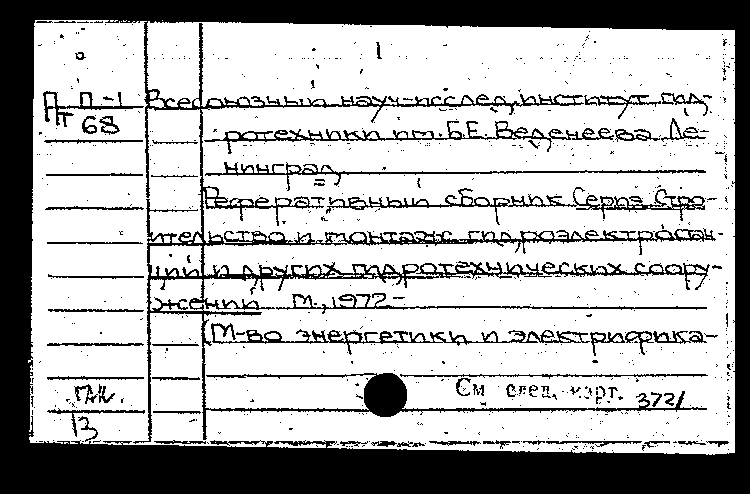 1
П П-1 Всесоюзный науч-исслед, институт гид-
Пт 68 ротехники им. Б.Е. Веденеева Ле-
нинград,
Реферативный сборник Серия Стро-
ительство и монтаж гидроэлектростан-
ций и других гидротехнических соору-
жений М., 1972-
(М-во энергетики и электрифика-
См след. карт. 372/
13